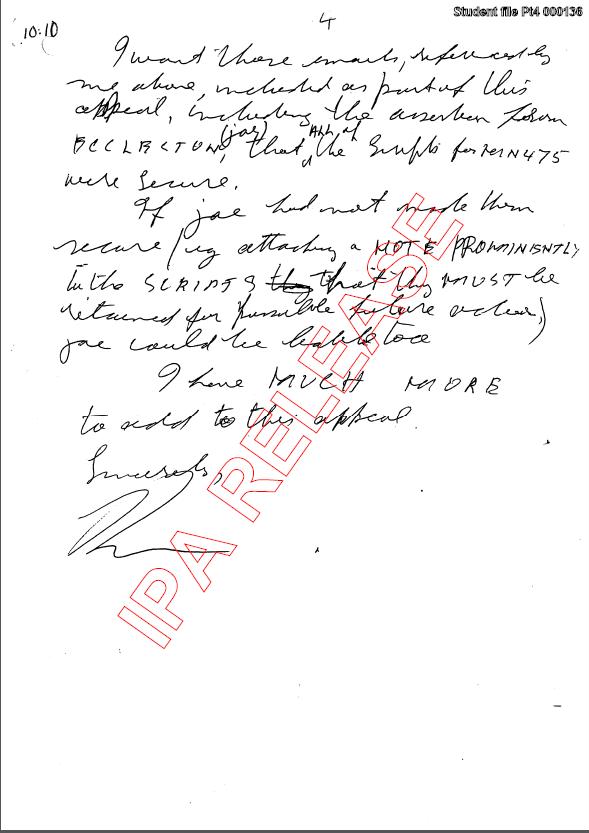 Student file Pt4 000136
10:10
4
I want those emails, referenced by
me above, included as part of this
appeal, including the assertion from
ECCLESTON (joe), that ALL of the scripts for MIN475
were secure.
If joe had not made them
secure (eg attaching a NOTE PROMINENTLY
to the SCRIPTS that they MUST be
retained for possible future action)
joe could be liable too
I have MUCH MORE
to add to this appeal.
Sincerely,
IPA RELEASE